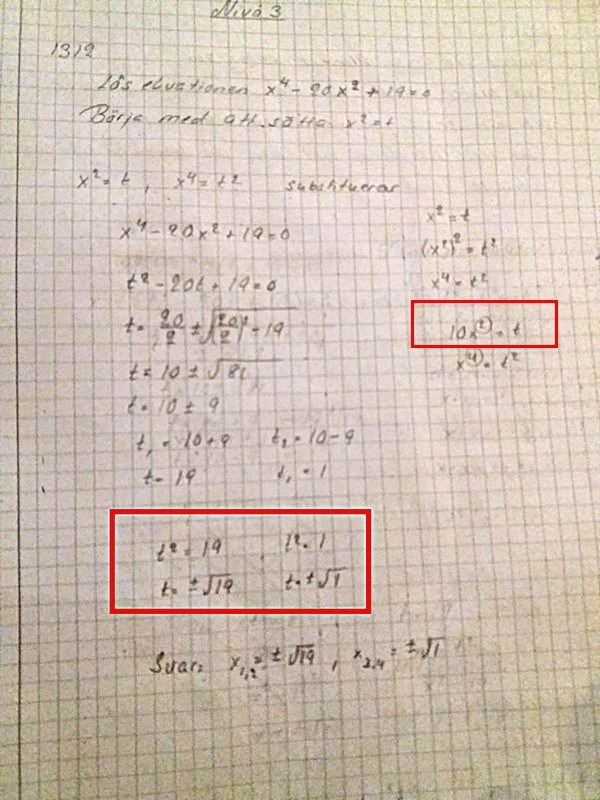 Nivå 3
1312
Lös ekvationen x⁴ - 20x² + 19 = 0
Börja med att sätta x² = t
x² = t, x⁴ = t² substituerar
x⁴ - 20x² + 19 = 0
t² - 20t + 19 = 0
t = 20/2 ± √((20/2)² - 19)
t = 10 ± √81
t = 10 ± 9
t₁ = 10+9 t₂ = 10-9
t = 19 t₁ = 1
x² = t
(x²)² = t²
x⁴ = t²
10x² = t
x⁴ = t²
t² = 19 t² = 1
t = ±√19 t = ±√1
Svar: x₁,₂ = ±√19, x₃,₄ = ±√1